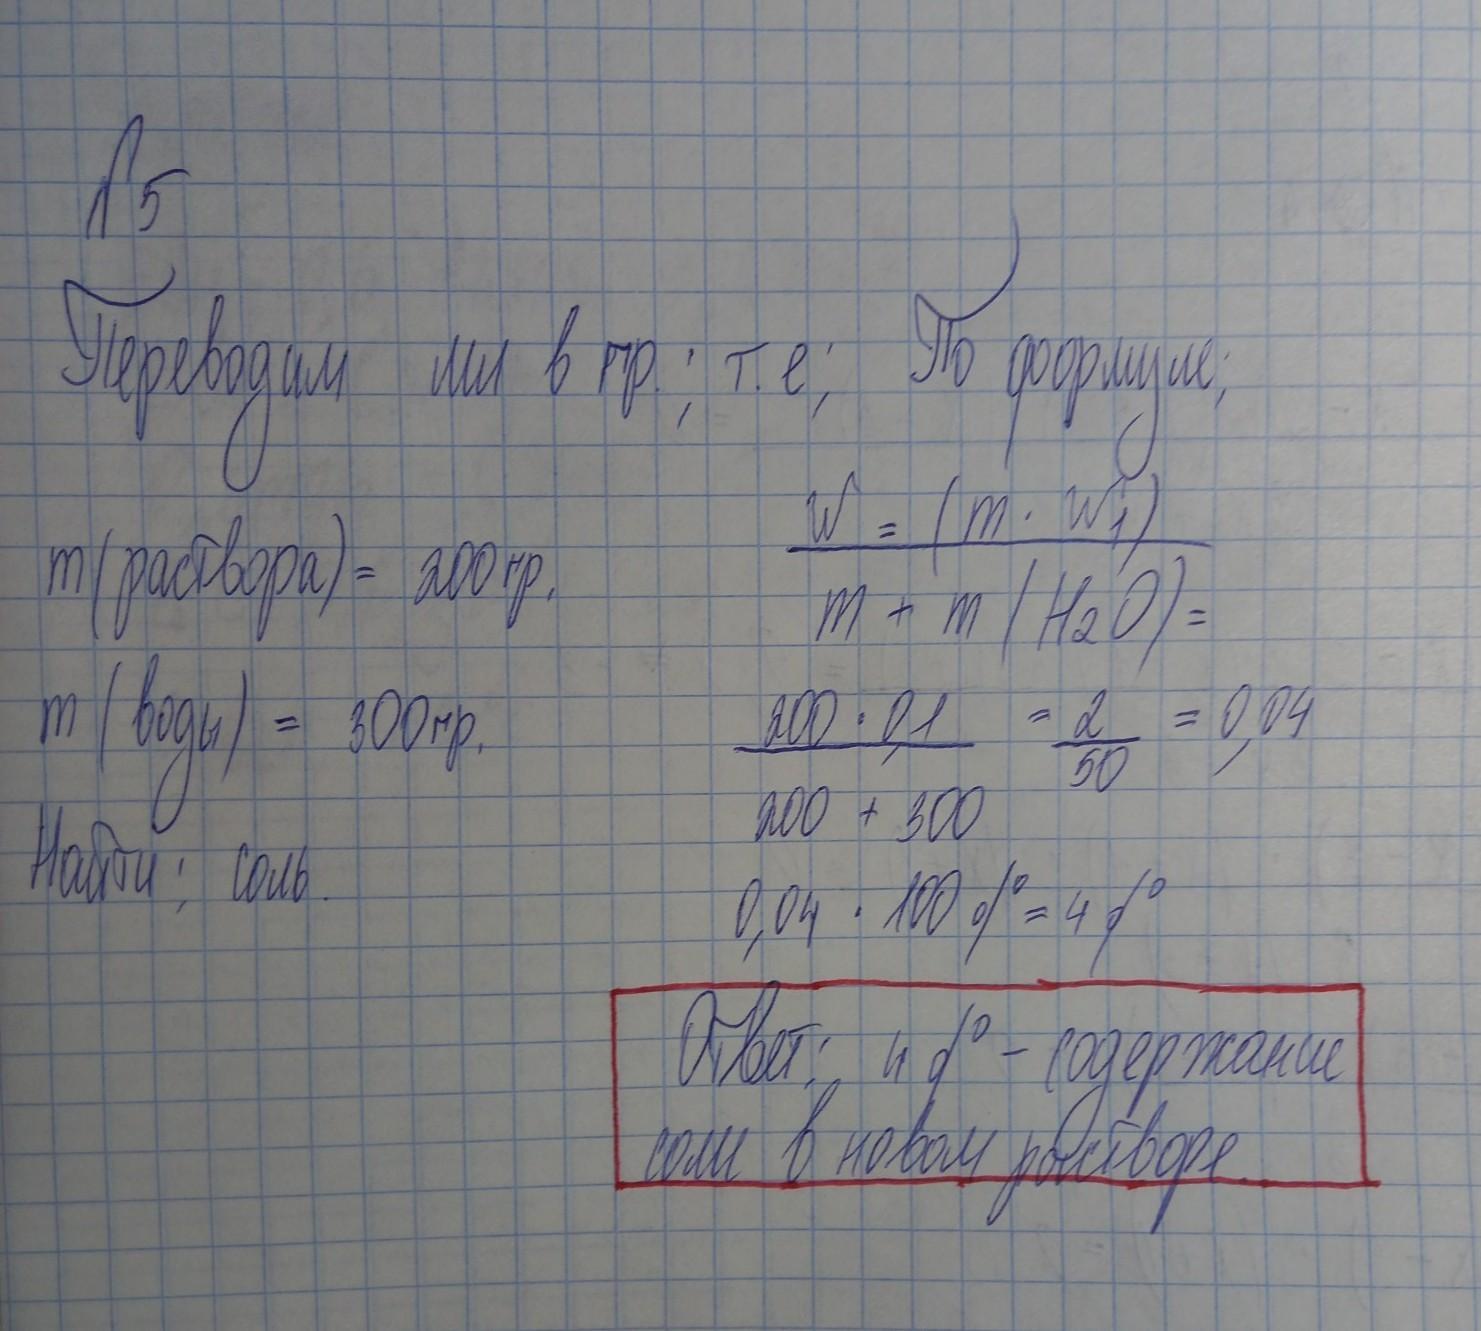 №5
Переводим мл в гр.; т.е; По формуле;
m (раствора) = 200 гр.
m (воды) = 300 гр.
Найти; соль.
W = (m · W1)
m + m (H2O) =
200 · 0,1 = 2 = 0,04
200 + 300 50
0,04 · 100 % = 4 %
Ответ: 4 % - содержание
соли в новом растворе